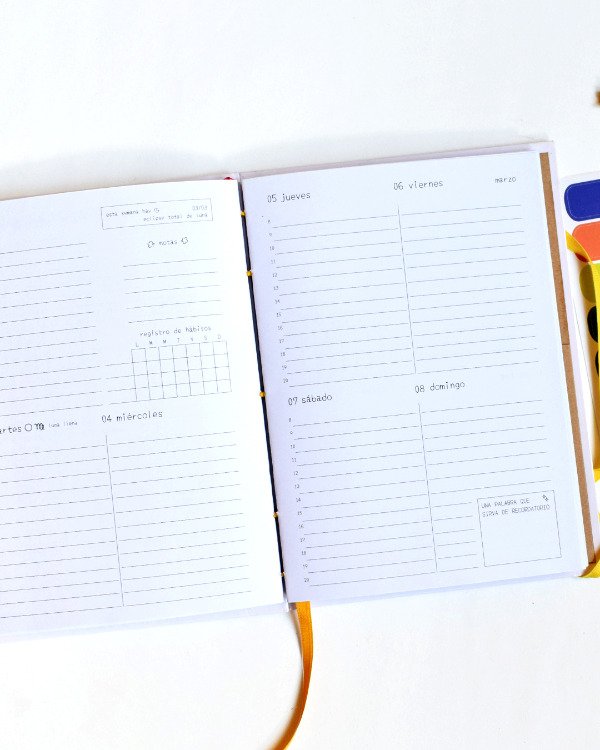 esta semana hay
03/03
eclipse total de luna
notas
registro de hábitos
L M M J V S D
artes
luna llena
04 miércoles
05 jueves
06 viernes
marzo
8
9
10
11
12
13
14
15
16
17
18
19
20
07 sábado
08 domingo
8
9
10
11
12
13
14
15
16
17
18
19
20
UNA PALABRA QUE
SIRVA DE RECORDATORIO